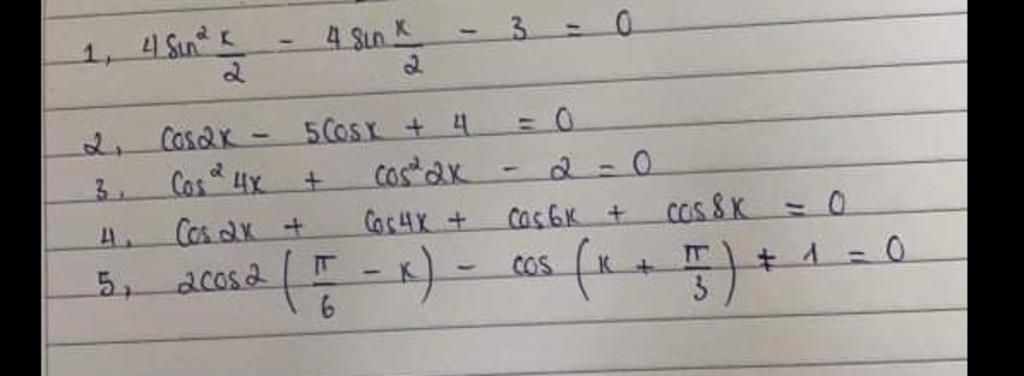 1, 4 Sin² x/2 - 4 sin x/2 - 3 = 0
2, Cos2x - 5Cosx + 4 = 0
3. Cos² 4x + cos² 2x - 2 = 0
4. Cos 2x + Cos4x + Cos6x + cos 8x = 0
5, 2cos2 (π/6 - x) - cos (x + π/3) + 1 = 0